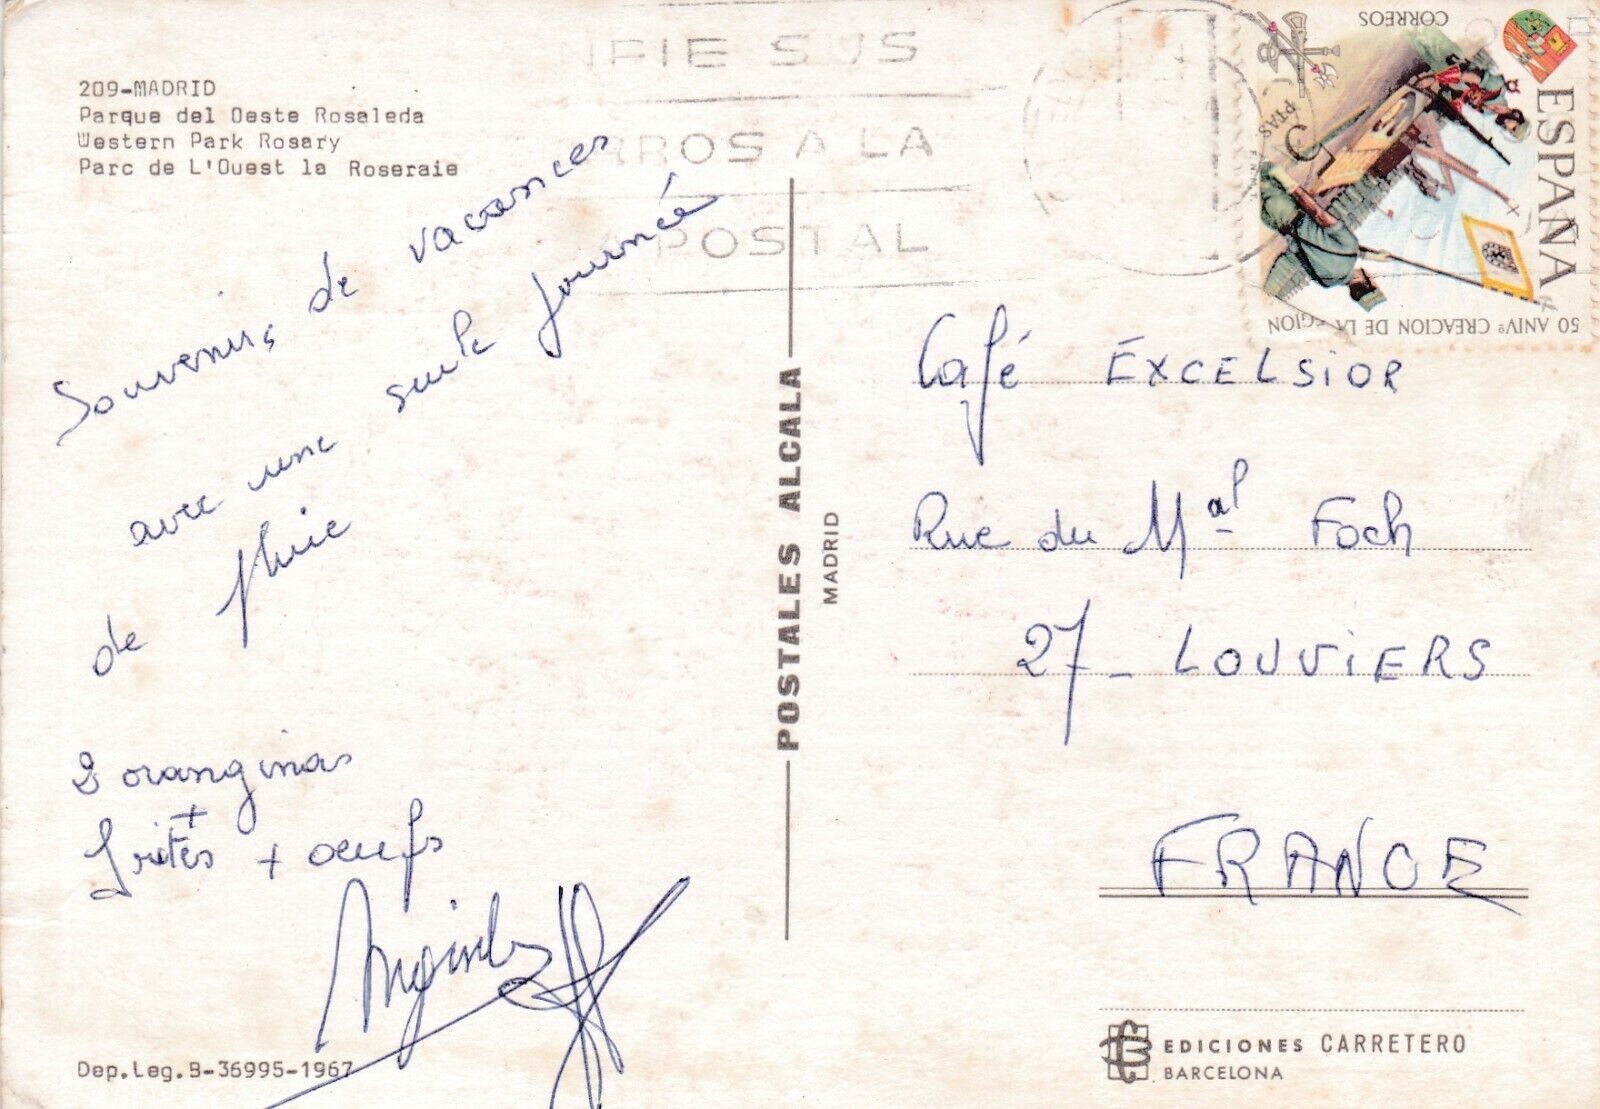 209-MADRID
Parque del Oeste Rosaleda
Western Park Rosary
Parc de L'Ouest la Roseraie
NFIE SUS
RROS A LA
A POSTAL
CORREOS
ESPAÑA
5 PTAS
50 ANIVº CREACION DE LA EGION
Souvenirs de vacances
avec une seule journée
de pluie
2 oranginas
+
frites + oeufs
Dep.Leg.B-36995-1967
POSTALES ALCALA
MADRID
Café EXCELSiOR
Rue du Mal Foch
27 - LOUViERS
FRANCE
EDICIONES CARRETERO
BARCELONA